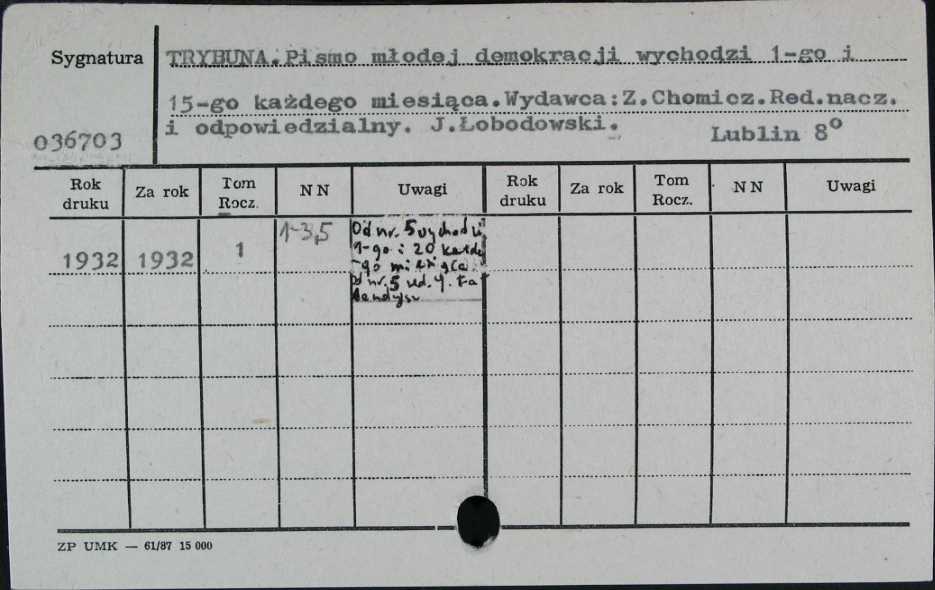 Sygnatura
TRYBUNA.Pismo młodej demokracji wychodzi 1-go i
15-go każdego miesiąca.Wydawca:Z.Chomicz.Red.nacz.
i odpowiedzialny. J.Łobodowski.
Lublin 8º
036703
Rok druku Za rok Tom Rocz. NN Uwagi Rok druku Za rok Tom Rocz. NN Uwagi
1932 1932 1 1-3,5
Od nr. 5 wychodzi
1-go i 20 każde
-go miesiąca.
Od nr. 5 red.
ZP UMK — 61/87 15 000